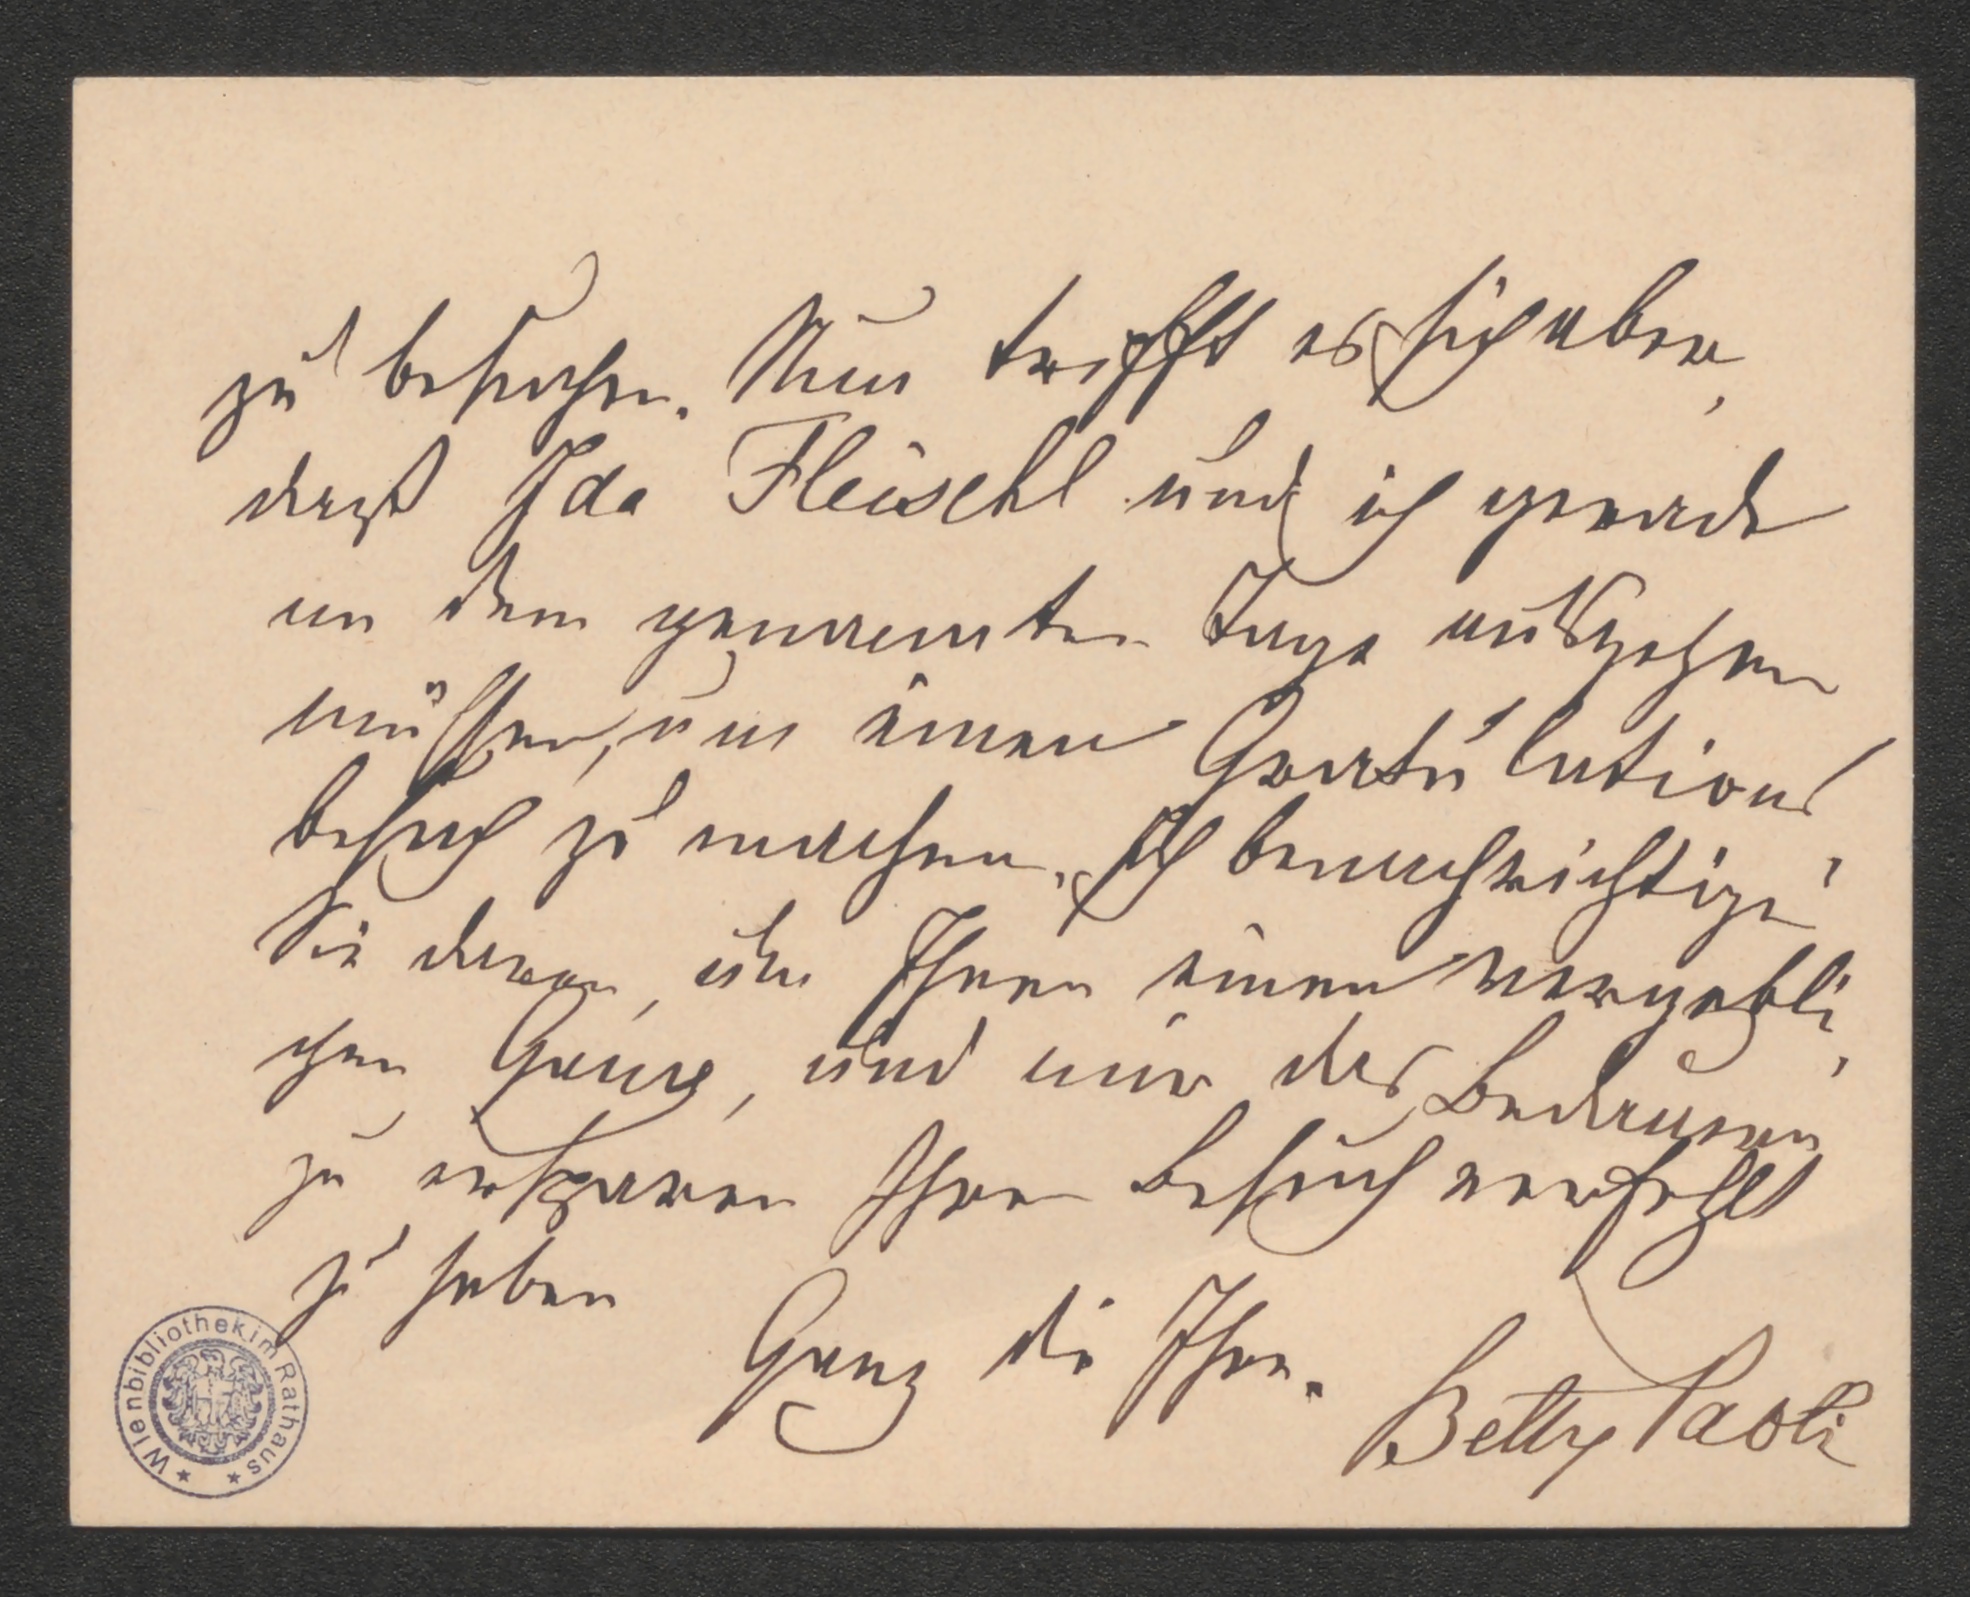 zu besuchen. Nun trifft es sich aber,
daß Ida Fleischl und ich gerade
an dem genannten Tage ausgehen
müssen, um einen Gratulations
besuch zu machen. Ich benachrichtige
Sie davon, um Ihnen einen vergebli-
chen Gang, und mir das Bedauern
zu ersparen Ihren Besuch verfehlt
zu haben
Ganz die Ihre.
Betty Paoli
Wienbibliothek im Rathaus